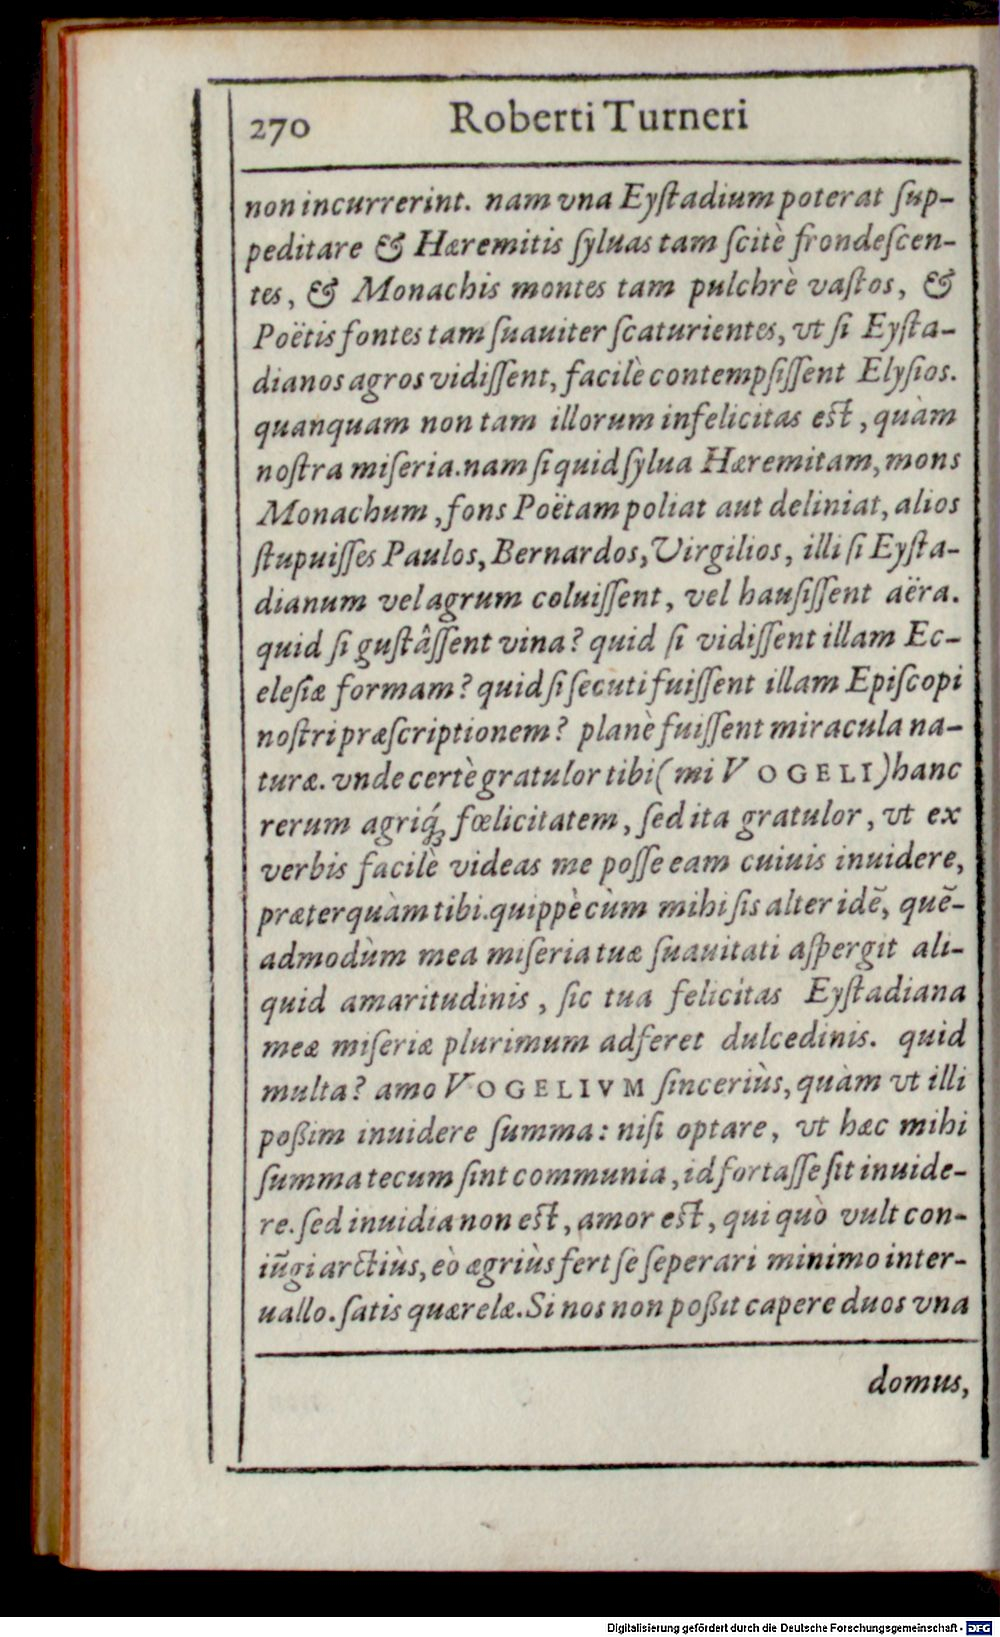 270 Roberti Turneri
non incurrerint. nam vna Eyſtadium poterat ſup-
peditare & Hæremitis ſyluas tam ſcitè frondeſcen-
tes, & Monachis montes tam pulchrè vaſtos, &
Poëtis fontes tam ſuauiter ſcaturientes, vt ſi Eyſta-
dianos agros vidiſſent, facilè contempſiſſent Elyſios.
quanquam non tam illorum infelicitas eſt, quàm
noſtra miſeria. nam ſi quid ſylua Hæremitam, mons
Monachum, fons Poëtam poliat aut deliniat, alios
ſtupuiſſes Paulos, Bernardos, Virgilios, illi ſi Eyſta-
dianum vel agrum coluiſſent, vel hauſiſſent aëra.
quid ſi guſtâſſent vina? quid ſi vidiſſent illam Ec-
cleſiæ formam? quid ſi ſecuti fuiſſent illam Epiſcopi
noſtri præſcriptionem? planè fuiſſent miracula na-
turæ. vnde certè gratulor tibi (mi VOGELI) hanc
rerum agriq́; fœlicitatem, ſed ita gratulor, vt ex
verbis facilè videas me poſſe eam cuiuis inuidere,
præterquàm tibi. quippè cùm mihi ſis alter idē, quē-
admodùm mea miſeria tuæ ſuauitati aſpergit ali-
quid amaritudinis, ſic tua felicitas Eyſtadiana
meæ miſeriæ plurimum adferet dulcedinis. quid
multa? amo VOGELIVM ſinceriùs, quàm vt illi
poßim inuidere ſumma: niſi optare, vt hæc mihi
ſumma tecum ſint communia, id fortaſſe ſit inuide-
re. ſed inuidia non eſt, amor eſt, qui quò vult con-
iūgi arctiùs, eò ægriùs fert ſe ſeperari minimo inter-
uallo. ſatis quærelæ. Si nos non poßit capere duos vna
domus,
Digitalisierung gefördert durch die Deutsche Forschungsgemeinschaft - DFG